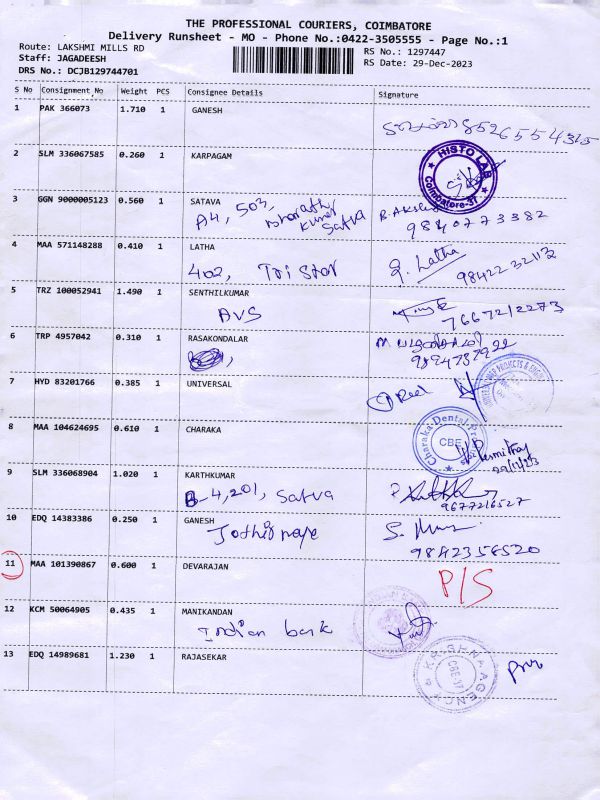 THE PROFESSIONAL COURIERS, COIMBATORE
Delivery Runsheet - MO - Phone No.:0422-3505555 - Page No.:1
Route: LAKSHMI MILLS RD
Staff: JAGADEESH
DRS No.: DCJB129744701
RS No.: 1297447
RS Date: 29-Dec-2023
S No Consignment No Weight PCS Consignee Details Signature
1 PAK 366073 1.710 1 GANESH
8526554315
2 SLM 336067585 0.260 1 KARPAGAM
HISTO LAB
Coimbatore-37.
3 GGN 9000005123 0.560 1 SATAVA
A4, 503, Bharathi
Kumar
Satva
9840773382
4 MAA 571148288 0.410 1 LATHA
402, Tristar
Latha
9842232113
5 TRZ 100052941 1.490 1 SENTHILKUMAR
AVS
7667212273
6 TRP 4957042 0.310 1 RASAKONDALAR
7 HYD 83201766 0.385 1 UNIVERSAL
8 MAA 104624695 0.610 1 CHARAKA
Charaka Dental
CBE
29/12/23
9 SLM 336068904 1.020 1 KARTHKUMAR
B-4, 201, Satva
9677216527
10 EDQ 14383386 0.250 1 GANESH
9842356520
11 MAA 101390867 0.600 1 DEVARAJAN
P/S
12 KCM 50064905 0.435 1 MANIKANDAN
Indian bank
13 EDQ 14989681 1.230 1 RAJASEKAR
AGENCY
CBE-37